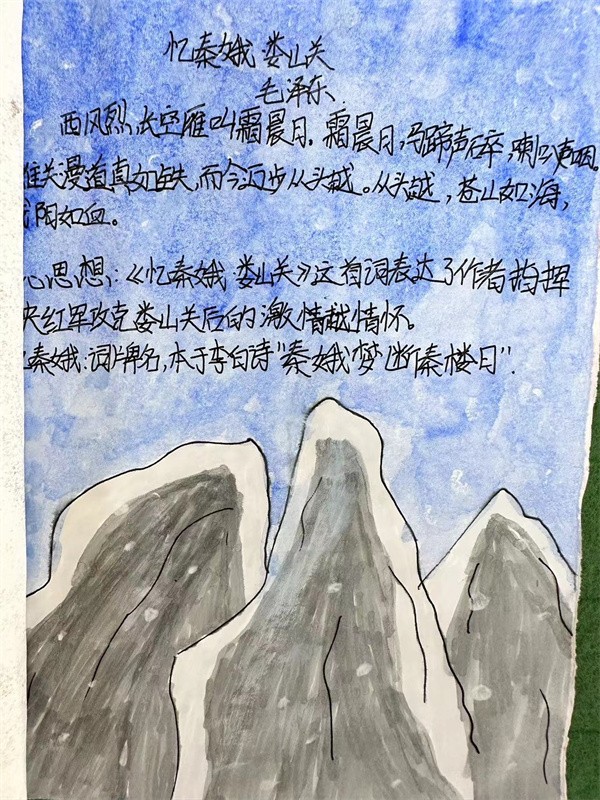 忆秦娥·娄山关
毛泽东
西风烈,长空雁叫霜晨月。霜晨月,马蹄声碎,喇叭声咽。
雄关漫道真如铁,而今迈步从头越。从头越,苍山如海,
残阳如血。
心思想:《忆秦娥·娄山关》这首词表达了作者指挥
央红军攻克娄山关后的激情越情怀。
秦娥:词牌名,本于李白诗"秦娥梦断秦楼月".